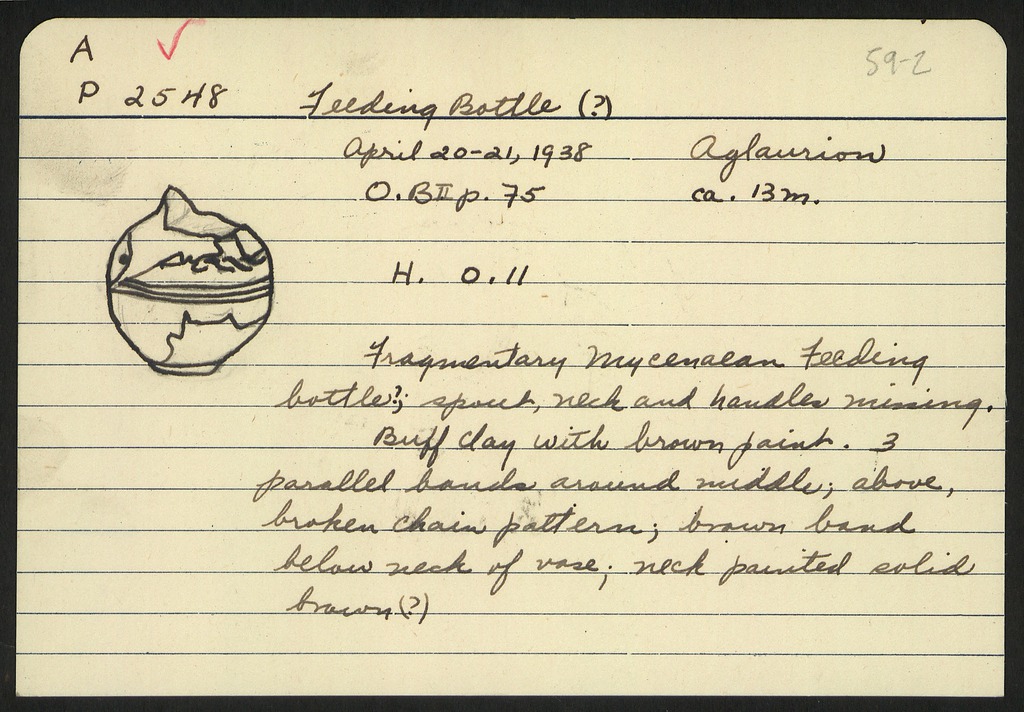 A
59-2
P 2548 Feeding Bottle (?)
April 20-21, 1938 Aglaurion
O.BII p. 75 ca. 13m.
H. 0.11
Fragmentary Mycenaean Feeding
bottle?; spout, neck and handles missing.
Buff clay with brown paint. 3
parallel bands around middle; above,
broken chain pattern; brown band
below neck of vase; neck painted solid
brown (?)